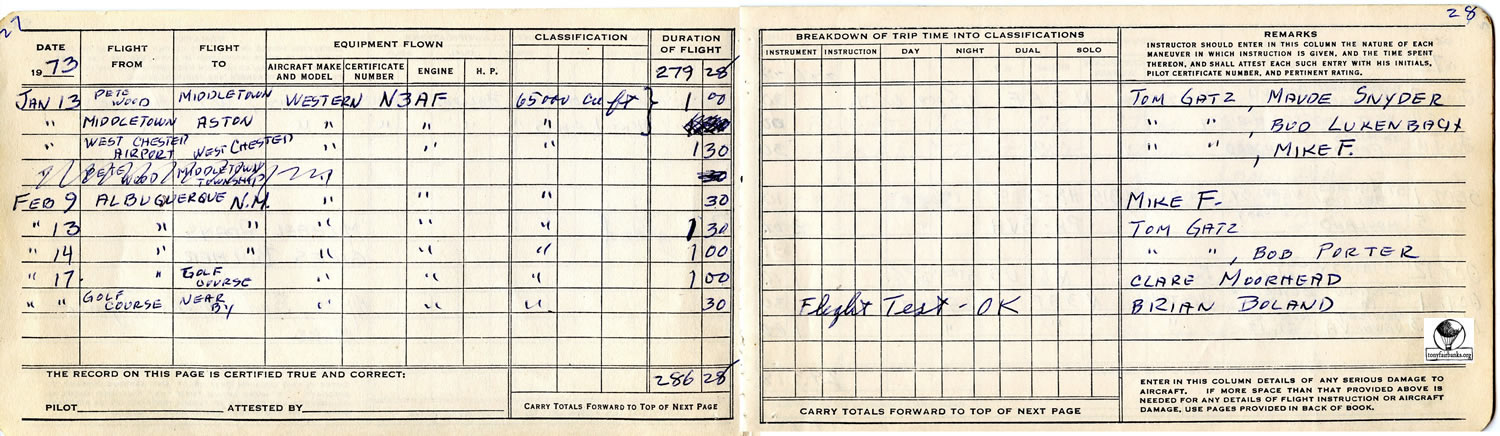 27
28
DATE
1973
FLIGHT FROM
FLIGHT TO
EQUIPMENT FLOWN
AIRCRAFT MAKE AND MODEL
CERTIFICATE NUMBER
ENGINE
H. P.
CLASSIFICATION
DURATION OF FLIGHT
279 28
BREAKDOWN OF TRIP TIME INTO CLASSIFICATIONS
INSTRUMENT INSTRUCTION DAY NIGHT DUAL SOLO
REMARKS
INSTRUCTOR SHOULD ENTER IN THIS COLUMN THE NATURE OF EACH
MANEUVER IN WHICH INSTRUCTION IS GIVEN, AND THE TIME SPENT
THEREON, AND SHALL ATTEST EACH SUCH ENTRY WITH HIS INITIALS,
PILOT CERTIFICATE NUMBER, AND PERTINENT RATING.
JAN 13 PETE WOOD MIDDLETOWN WESTERN N3AF 65000 cu ft } 1 00 TOM GATZ, MAUDE SNYDER
" MIDDLETOWN ASTON " " " " " , BUD LUKENBACH
" WEST CHESTER AIRPORT WEST CHESTER " " " 1 30 " " , MIKE F.
PETE WOOD MIDDLETOWN TOWNSHIP " 30
FEB 9 ALBUQUERQUE N.M. " " " 30 MIKE F.
" 13 " " " " " 1 30 TOM GATZ
" 14 " " " " " 1 00 " " , BOB PORTER
" 17 " GOLF COURSE " " " 1 00 CLARE MOORHEAD
" " GOLF COURSE NEAR BY " " " 30 Flight Test - OK BRIAN BOLAND
THE RECORD ON THIS PAGE IS CERTIFIED TRUE AND CORRECT:
286 28
PILOT ATTESTED BY
CARRY TOTALS FORWARD TO TOP OF NEXT PAGE
CARRY TOTALS FORWARD TO TOP OF NEXT PAGE
ENTER IN THIS COLUMN DETAILS OF ANY SERIOUS DAMAGE TO
AIRCRAFT. IF MORE SPACE THAN THAT PROVIDED ABOVE IS
NEEDED FOR ANY DETAILS OF FLIGHT INSTRUCTION OR AIRCRAFT
DAMAGE, USE PAGES PROVIDED IN BACK OF BOOK.
tonyfairbanks.org